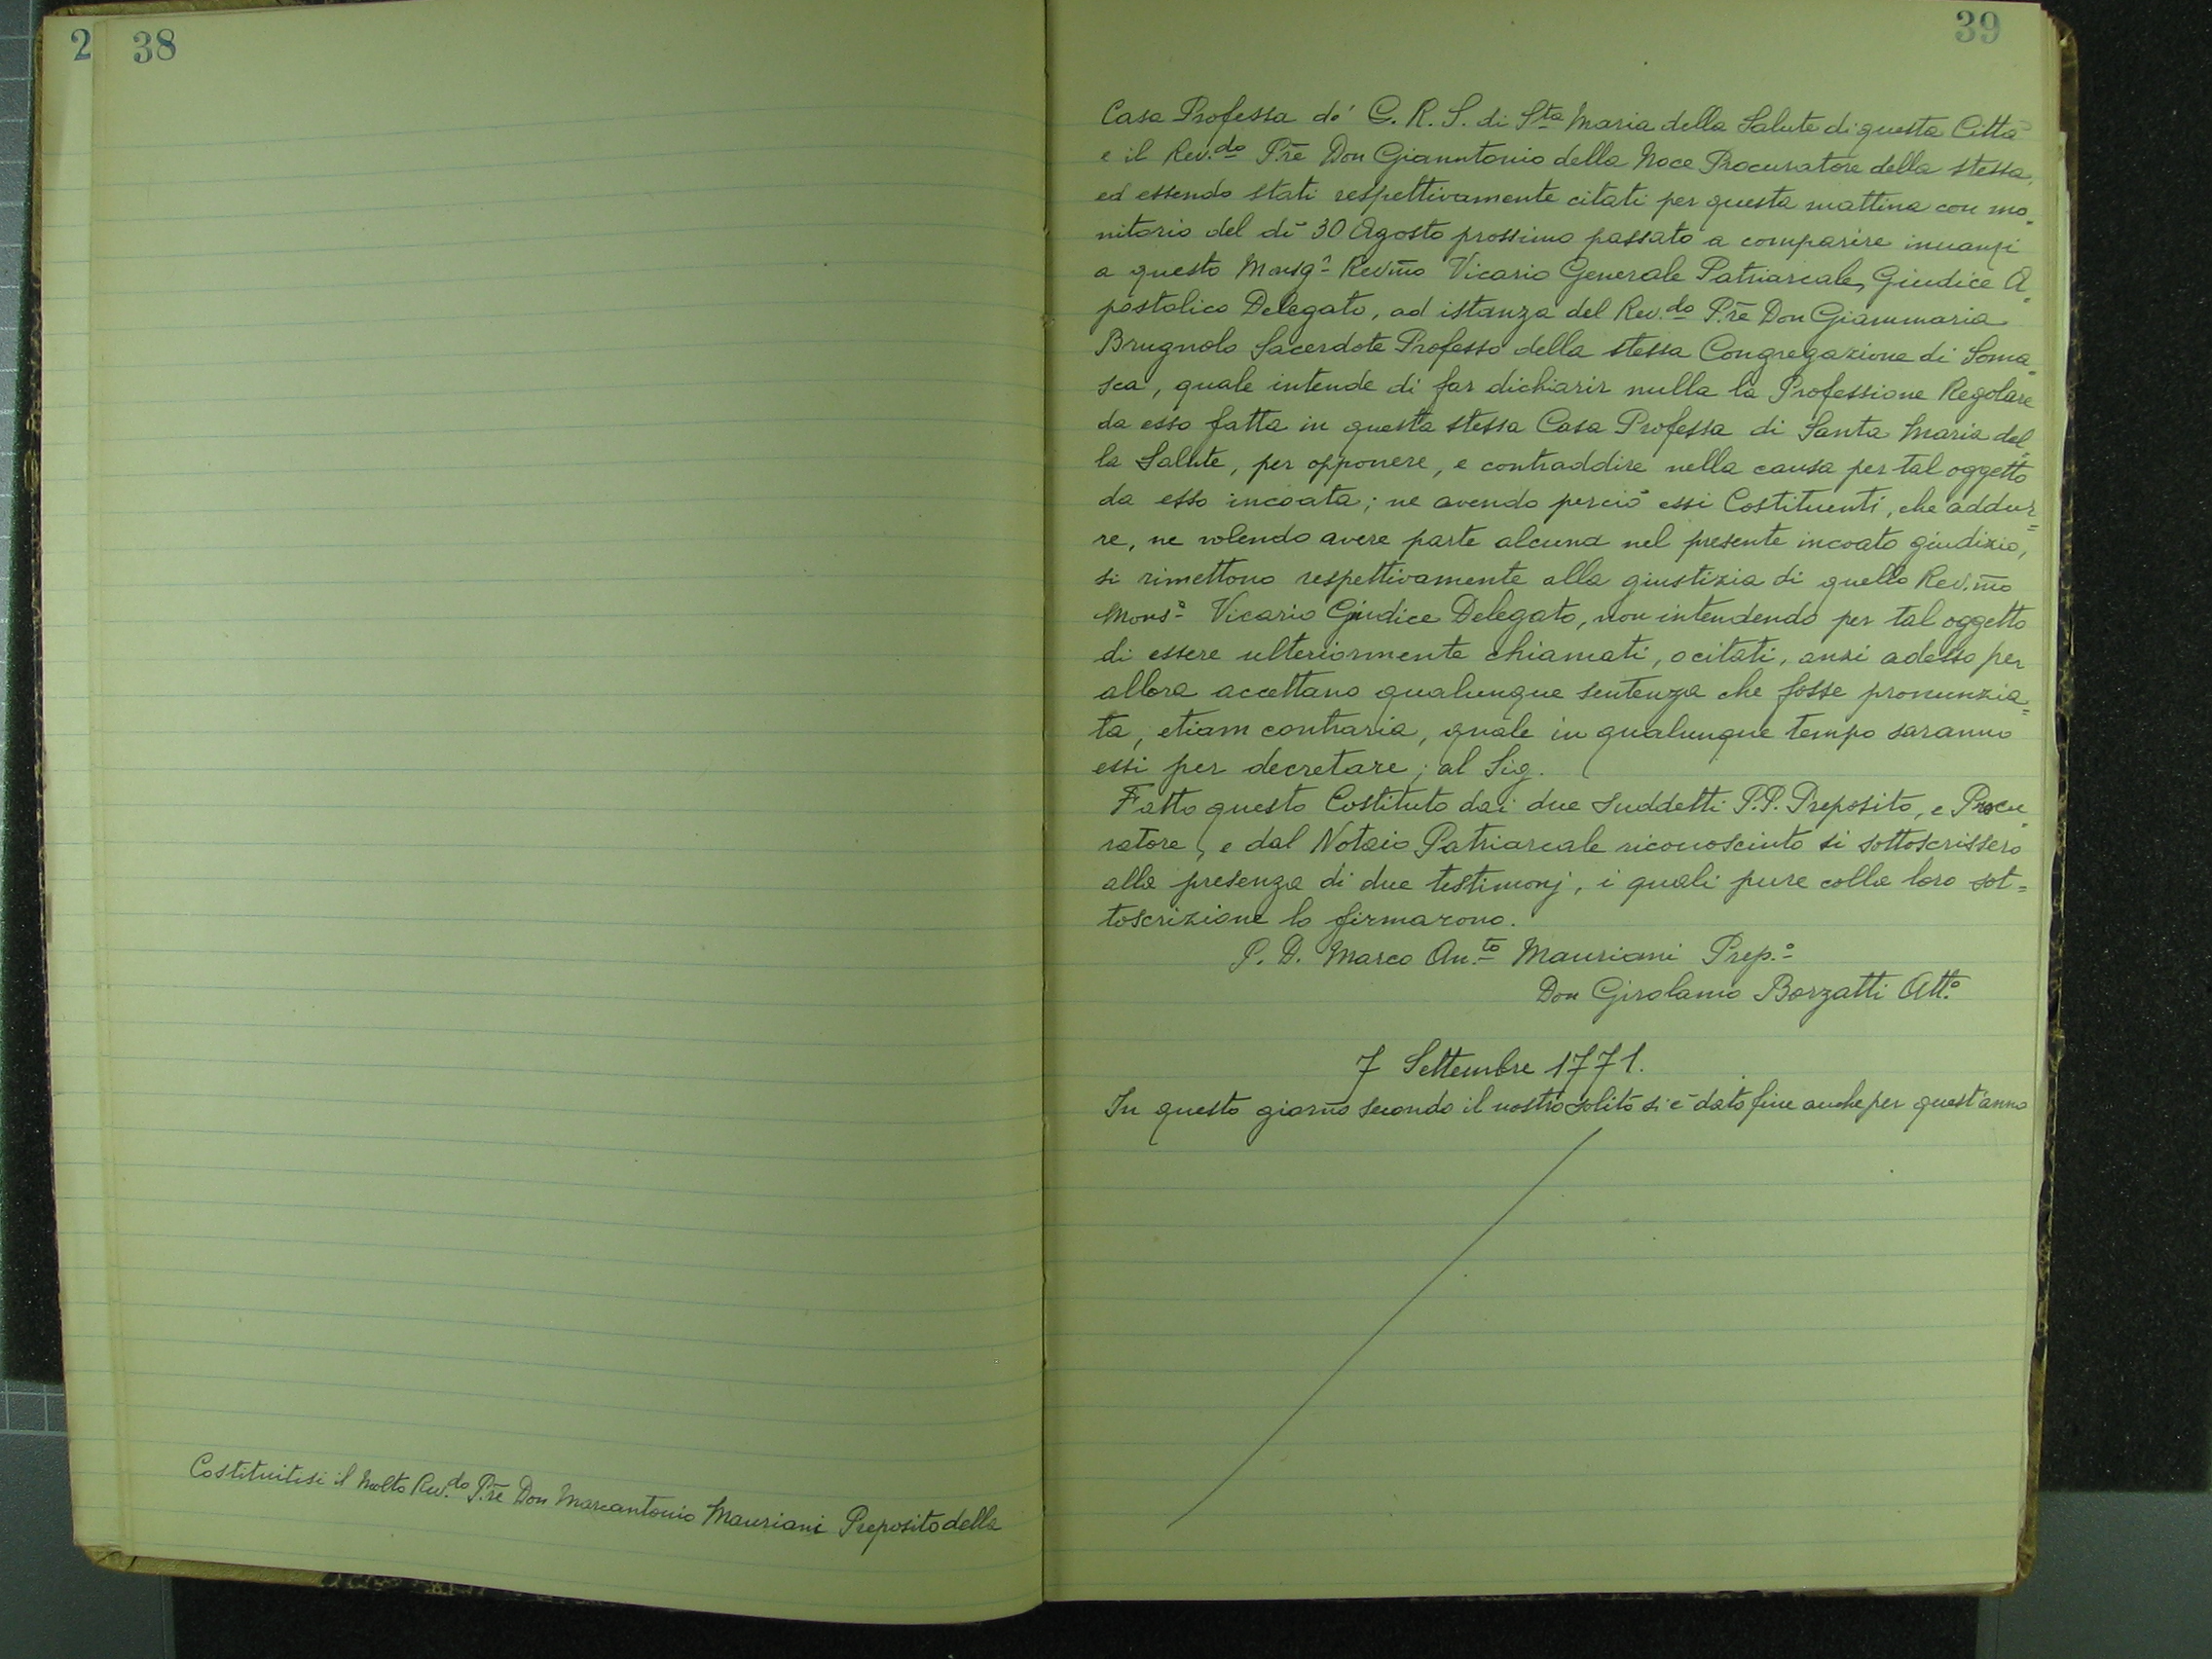 2 38
Costituitisi il Molto Rev.do P.re Don Marcantonio Mauriani Preposito della
39
Casa Professa de' C. R. S. di Sta Maria della Salute di questa Città
e il Rev.do P.re Don Gianntonio della Noce Procuratore della stessa,
ed essendo stati respettivamente citati per questa mattina con mo=
nitorio del dì 30 Agosto prossimo passato a comparire innanzi
a questo Monsgr Revmo Vicario Generale Patriarcale, Giudice A=
postolico Delegato, ad istanza del Rev.do P.re Don Giammaria
Brugnolo Sacerdote Professo della stessa Congregazione di Soma=
sca, quale intende di far dichiarir nulla la Professione Regolare
da esso fatta in questa stessa Casa Professa di Santa Maria del=
la Salute, per opponere, e contraddire nella causa per tal oggetto
da esso incoata; ne avendo perciò essi Costituenti, che addur=
re, ne volendo avere parte alcuna nel presente incoato giudizio,
si rimettono respettivamente alla giustizia di quello Rev.mo
Mons.o Vicario Giudice Delegato, non intendendo per tal oggetto
di essere ulteriormente chiamati, o citati, anzi adesso per
allora accettano qualunque sentenza che fosse pronunzia=
ta, etiam contraria, quale in qualunque tempo saranno
essi per decretare; al Sig.
Fatto questo Costituto dai due suddetti P.P. Preposito, e Procu=
ratore, e dal Notaio Patriarcale riconosciuto si sottoscrissero
alla presenza di due testimonj, i quali pure colla loro sot=
toscrizione lo firmarono.
P. D. Marco An.to Mauriani Prep.o
Don Girolamo Borzatti Att.o
7 Settembre 1771.
In questo giorno secondo il nostro solito si è dato fine anche per quest'anno